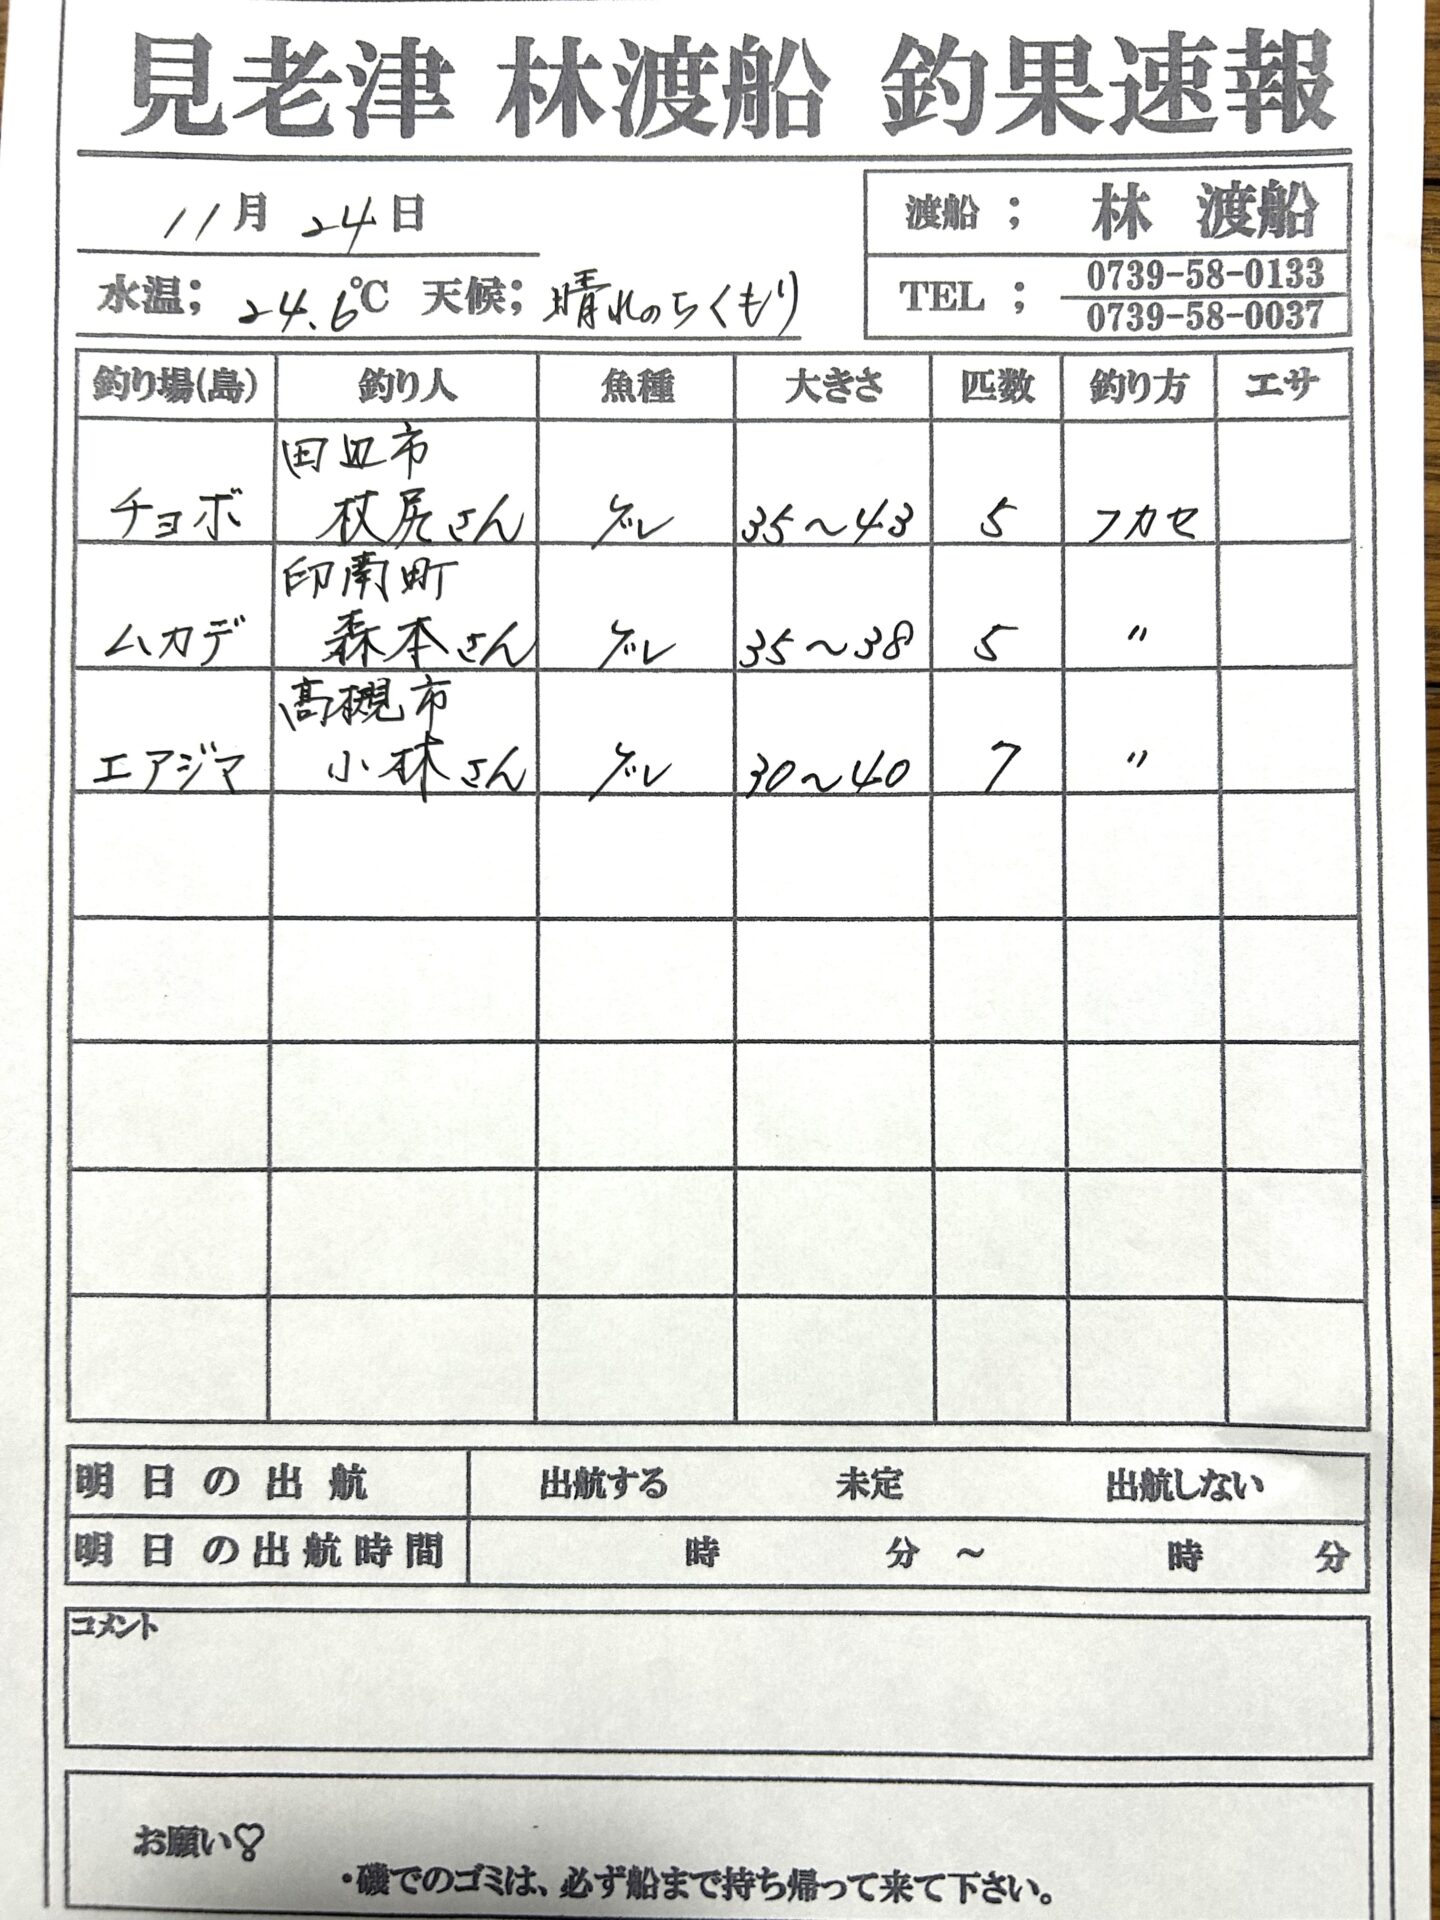 見老津 林渡船 釣果速報
11月 24日
渡船 ; 林 渡船
水温; 24.6℃ 天候; 晴れのちくもり
TEL ; 0739-58-0133
0739-58-0037
釣り場(島) 釣り人 魚種 大きさ 匹数 釣り方 エサ
田辺市
チョボ 杖尻さん グレ 35〜43 5 フカセ
印南町
ムカデ 森本さん グレ 35〜38 5 〃
高槻市
エアジマ 小林さん グレ 30〜40 7 〃
明日の出航 出航する 未定 出航しない
明日の出航時間 時 分 ～ 時 分
コメント
お願い
・磯でのゴミは、必ず船まで持ち帰って来て下さい。